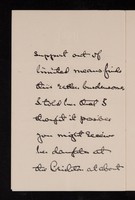 support out of
limited means finds
this rather burdensome.
I told her that I
thought it possible
you might receive
her daughter at
the Brighton at about